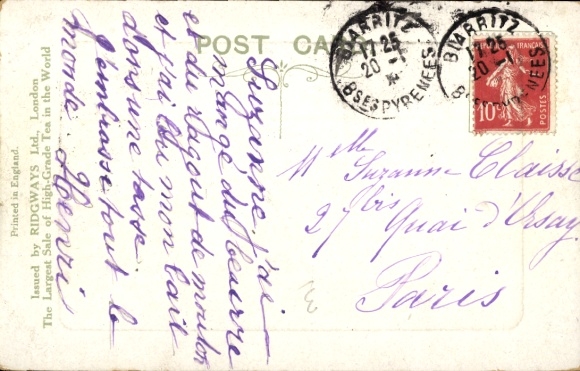 POST CARD
BIARRITZ
17 25
20 -1
BSES PYRENEES
BIARRITZ
17 25
20 -1
BSES PYRENEES
REPUBLIQUE FRANÇAISE
10c
POSTES
Suzanne j'ai
mangé du beurre
et du ragout de mouton
et j'ai bu mon lait
dans une tasse
J'embrasse tout le
monde. Henri
Mlle Suzanne Claisse
27 bis Quai d'Orsay
Paris
Printed in England.
Issued by RIDGWAYS Ltd., London
The Largest Sale of High-Grade Tea in the World